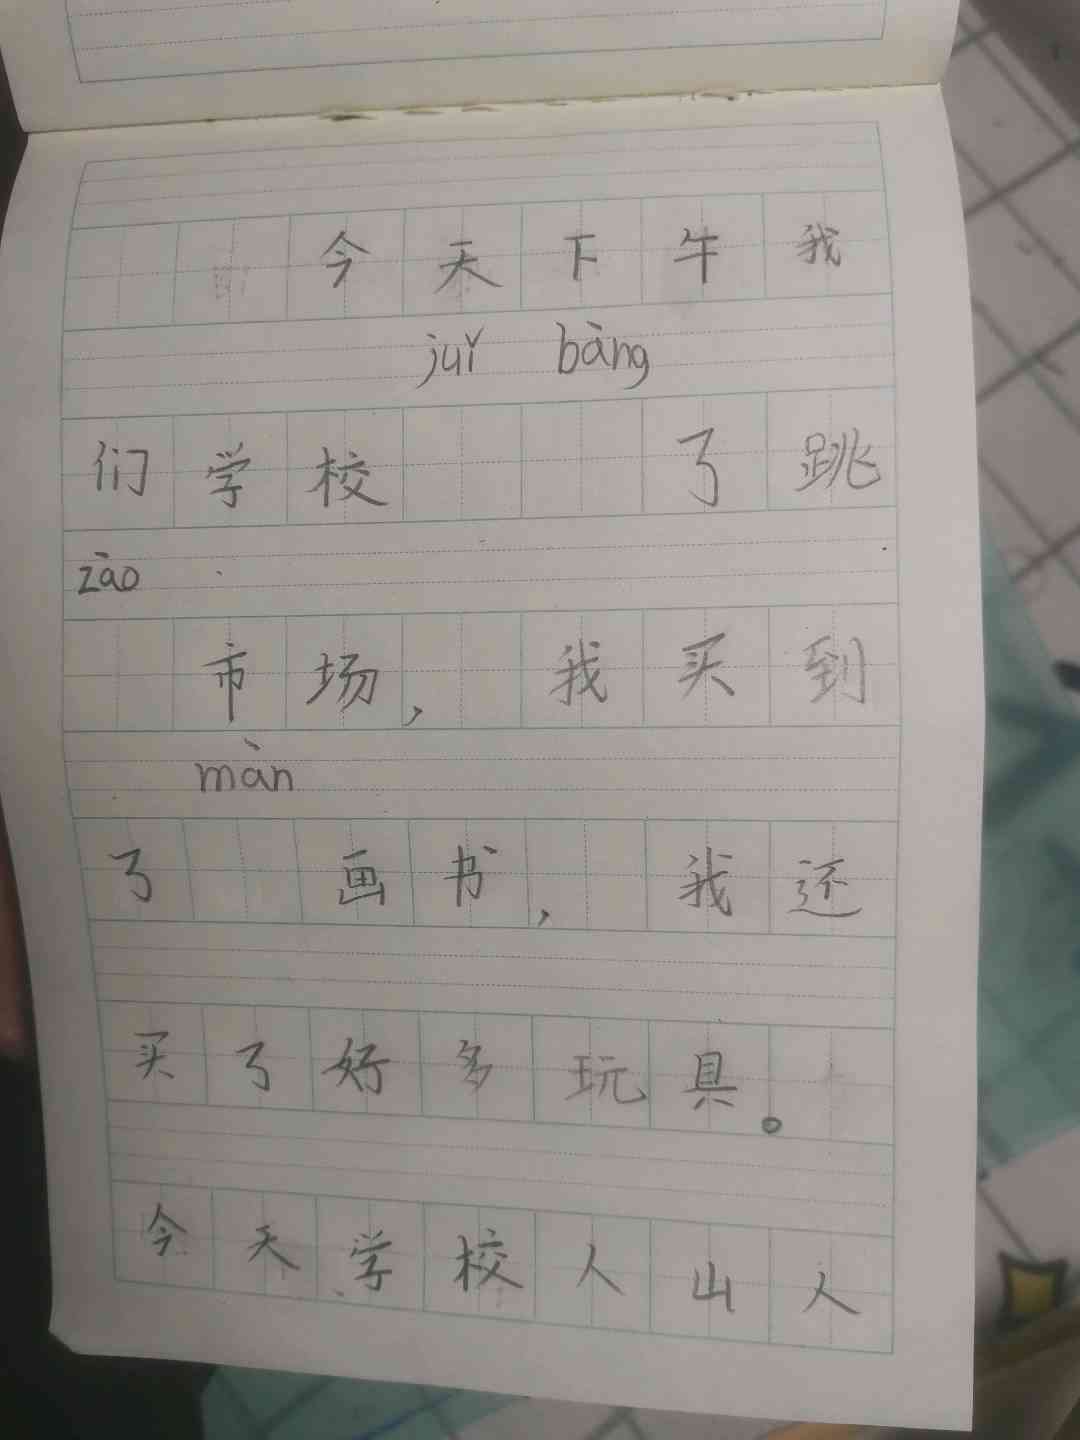 今天下午我
juǐ bàng
们学校 了跳
zào
市场，我买到
màn
了 画书，我还
买了好多玩具。
今天学校人山人